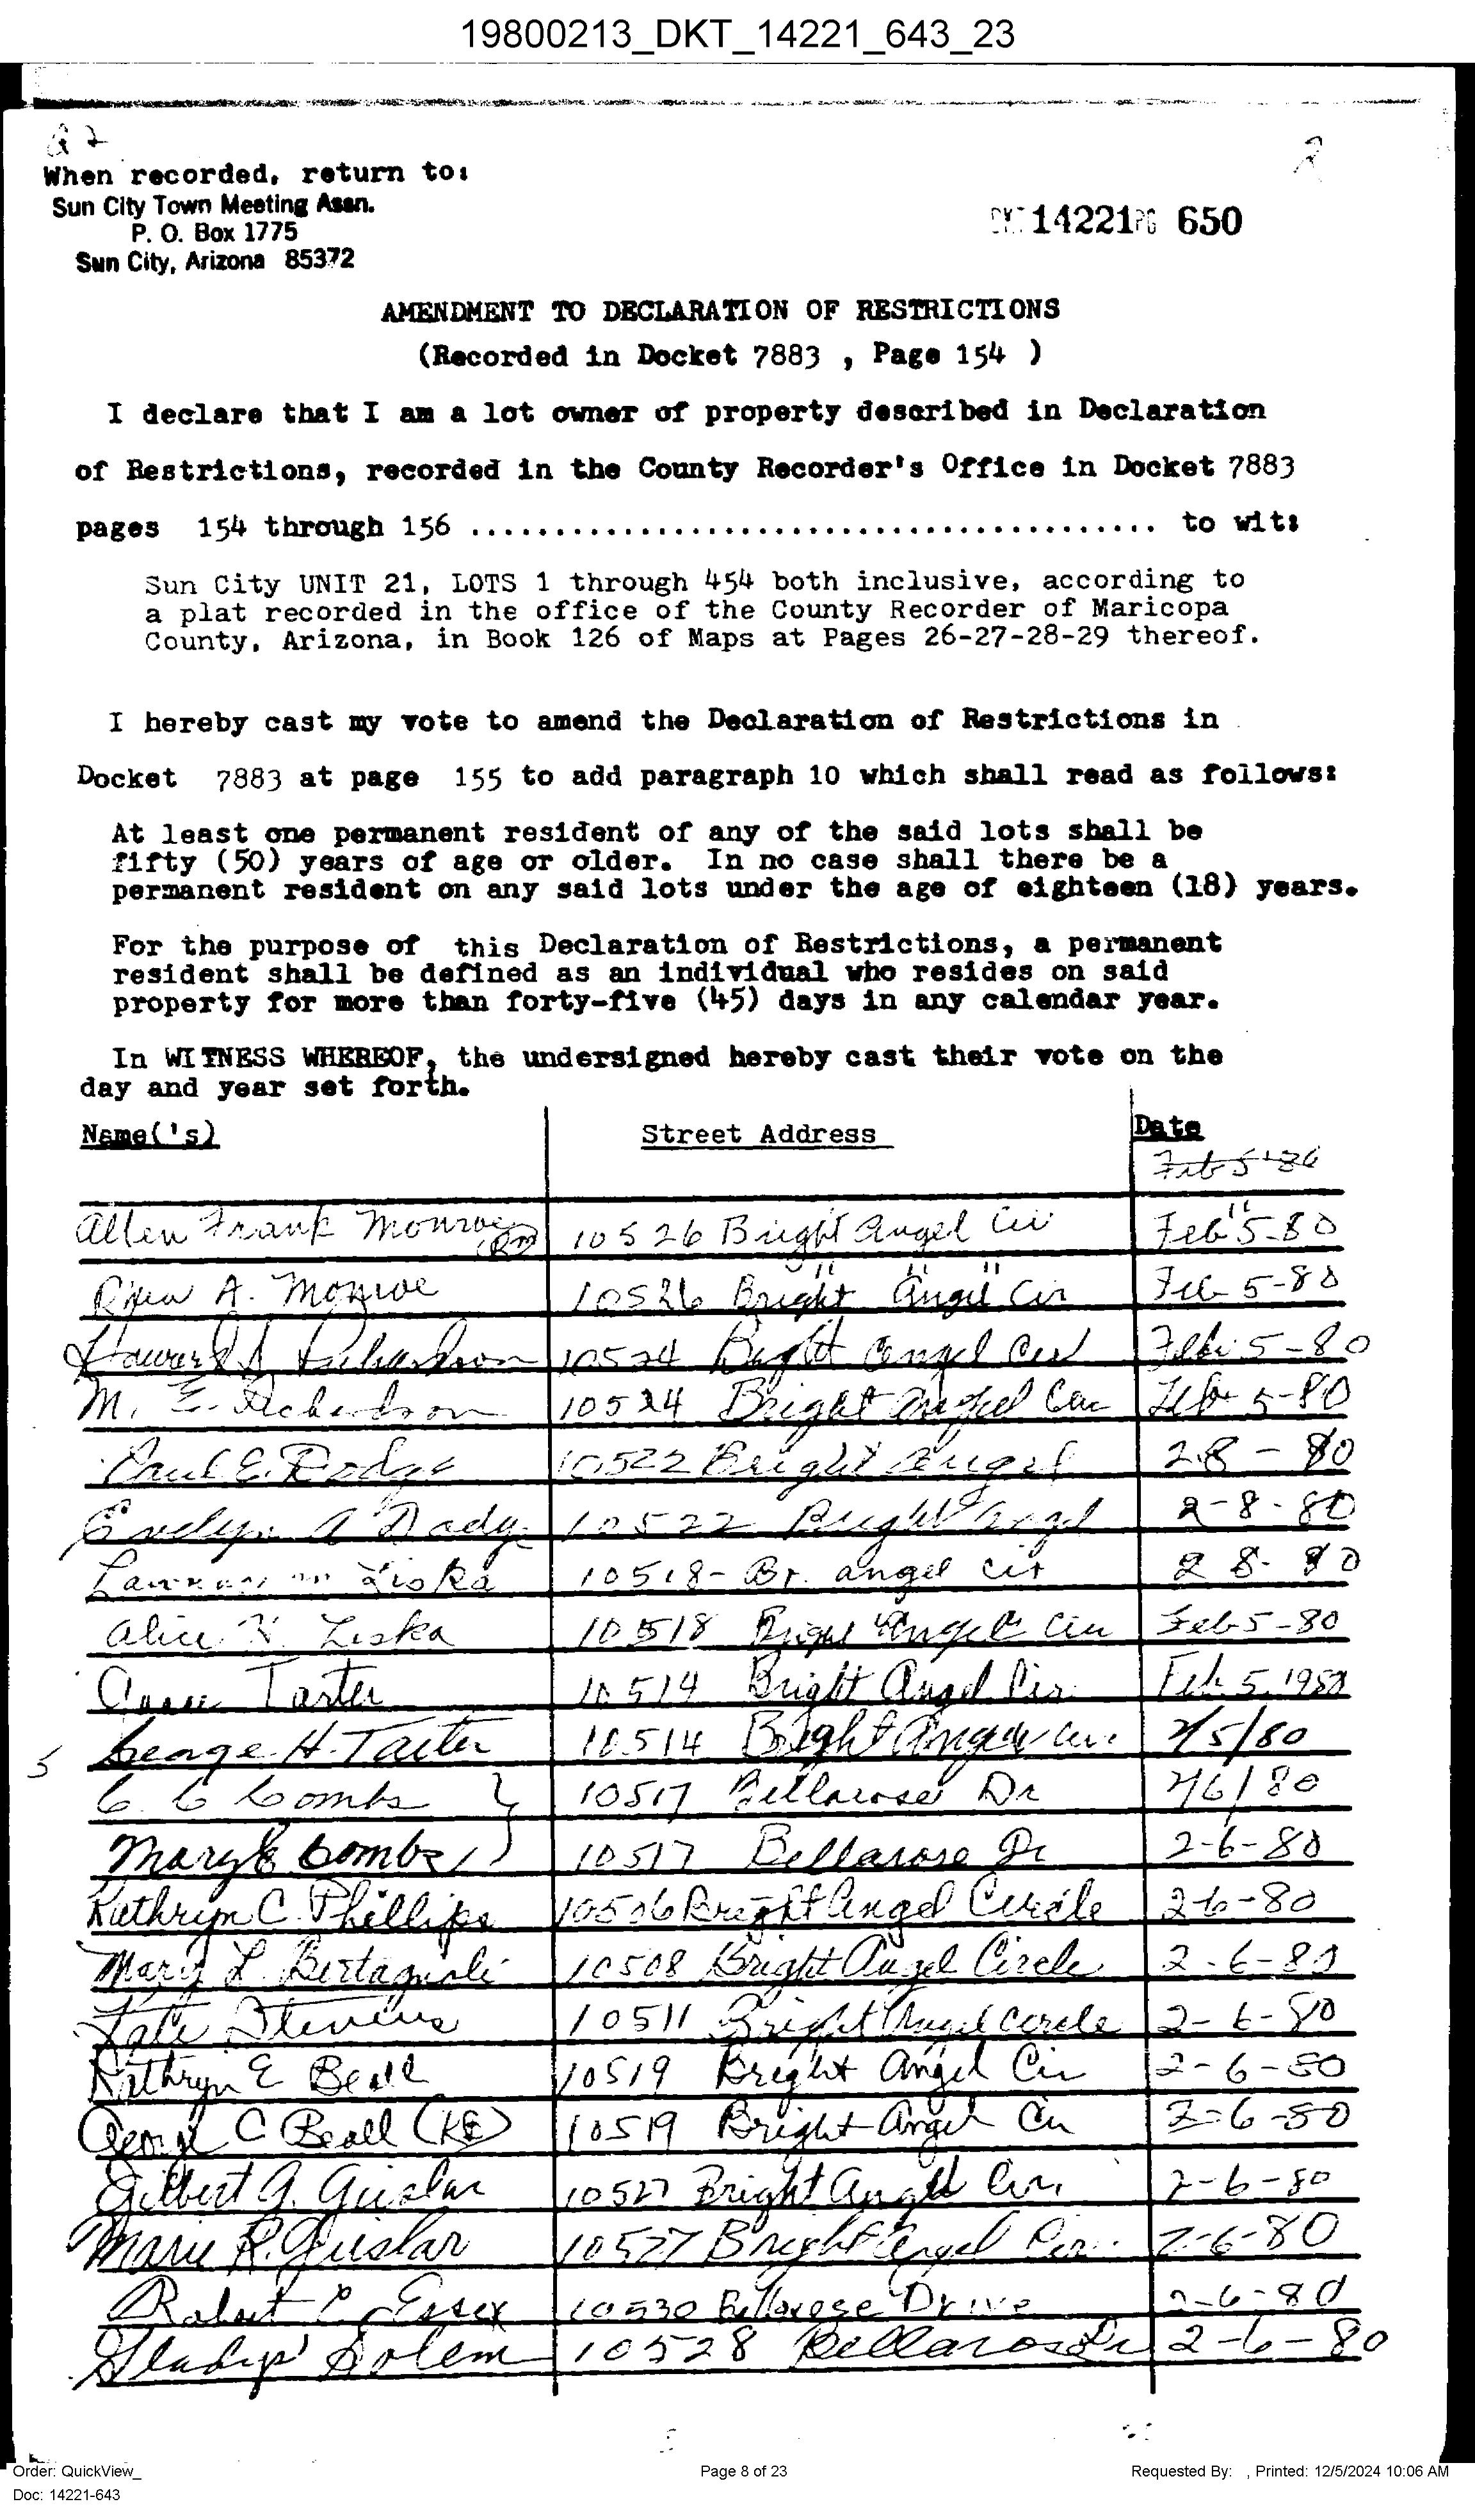 19800213_DKT_14221_643_23
2
When recorded, return to:
Sun City Town Meeting Assn.
P. O. Box 1775
Sun City, Arizona 85372
DKT 14221 PG 650
AMENDMENT TO DECLARATION OF RESTRICTIONS
(Recorded in Docket 7883 , Page 154 )
I declare that I am a lot owner of property described in Declaration
of Restrictions, recorded in the County Recorder's Office in Docket 7883
pages 154 through 156 ........................................ to wit:
Sun City UNIT 21, LOTS 1 through 454 both inclusive, according to
a plat recorded in the office of the County Recorder of Maricopa
County, Arizona, in Book 126 of Maps at Pages 26-27-28-29 thereof.
I hereby cast my vote to amend the Declaration of Restrictions in
Docket 7883 at page 155 to add paragraph 10 which shall read as follows:
At least one permanent resident of any of the said lots shall be
fifty (50) years of age or older. In no case shall there be a
permanent resident on any said lots under the age of eighteen (18) years.
For the purpose of this Declaration of Restrictions, a permanent
resident shall be defined as an individual who resides on said
property for more than forty-five (45) days in any calendar year.
In WITNESS WHEREOF, the undersigned hereby cast their vote on the
day and year set forth.
Name('s) Street Address Date
Allen Frank Monroe 10526 Bright Angel Cir Feb 5-80
A. Monroe 10526 Bright Angel Cir Feb 5-80
Howard S Richardson 10524 Bright Angel Cir Feb 5-80
M. E. Richardson 10524 Bright Angel Cir Feb 5-80
Paul E. Dodge 10522 Bright Angel 2-8-80
Evelyn A 10522 Bright Angel 2-8-80
Liska 10518- Br. angel cir 2 8- 80
Alice H. Liska 10518 Bright Angel Cir Feb 5-80
Tarter 10514 Bright Angel Cir. Feb. 5, 1980
George H. Tarter 10514 Bright Angel Cir. 2/5/80
5
C. C Combs 10517 Bellarose Dr 2/6/80
Mary E Combs 10517 Bellarose Dr 2-6-80
Kathryn C. Phillips 10506 Bright Angel Circle 2-6-80
Mary L. Bertagnoli 10508 Bright Angel Circle 2-6-80
Stevens 10511 Bright Angel Circle 2-6-80
Kathryn E Beall 10519 Bright Angel Cir 2-6-80
George C Beall (KE) 10519 Bright Angel Cir 2-6-80
Gilbert A. Guslar 10527 Bright Angel Cir. 2-6-80
Marie R. Guslar 10527 Bright Angel Cir. 2-6-80
Robert C. Essex 10530 Bellarose Drive 2-6-80
Gladys Solem 10528 Bellarose Dr 2-6-80
Order: QuickView_ Page 8 of 23 Requested By: , Printed: 12/5/2024 10:06 AM
Doc: 14221-643